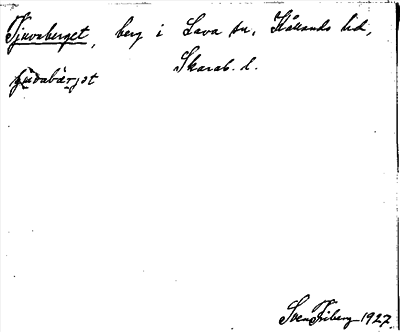 Tjuvaberget, berg i Lava sn, Kållands hd,
Skarab. l.
Sven Friberg 1927.